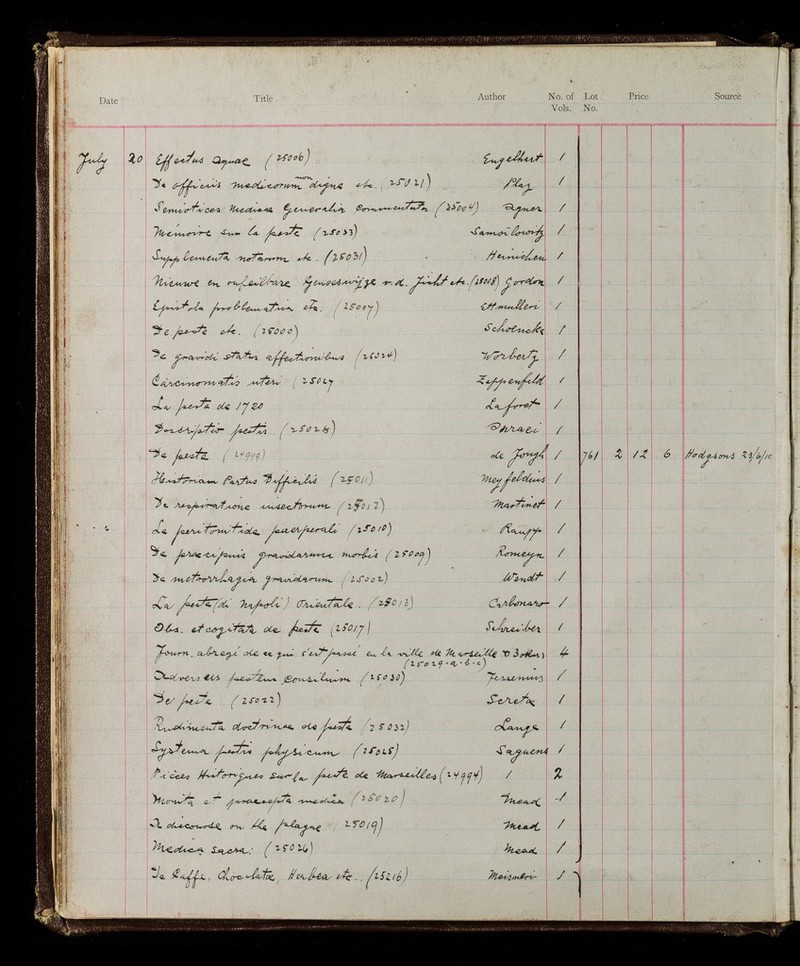 Date Title Author No. of Vols. Lot No. Price Source
July 20 Effectus Aquae (25006) Engelhart 1
De officiis medicorum non digne etc. (25021) Plaz 1
Semiotices Medicae Generalia Commentata (25004) Agner 1
Memoire sur la peste (25033) Samoilowitz 1
Supplementa notarum etc. (25031) Heinichen 1
Nieuwe en onfeilbare Geneeswijze v. d. Jicht etc. (25008) Gordon 1
Epistola problematica etc. (25007) Ettmulleri 1
De peste etc. (25000) Schoencke 1
De gravidi status affectionibus (25024) Worbertz 1
Carcinomatis uteri (25027 Zeppenfeld 1
La peste de 1720 Laforet 1
Descriptio pestis (25028) 1
De peste (24999) de Jongh 1 761 2 12 6 Hodgsons 23/6/10
Historiam Partus Difficilis (25011) Meyfeldius 1
De respiratione insectorum (25012) Martinet 1
La peritonitide puerperali (25010) Raupp 1
De praecipuis gravidarum morbis (25009) Romeyn 1
De metrorrhagia gravidarum (25002) Wendt 1
La peste (di Napoli) Orientale. (25013) Carbonaro 1
Obs. et cogitata de peste (25017) Schreiber 1
Journ. abregé de ce qui s'est passé en la ville de Marseille & 3 others 4
(25029.a.b.c)
Adversus pestem Consilium (25030) 1
De peste (25022) Screta 1
Rudimenta doctrinae de peste (25032) Lange 1
Systema pestis physicum (25025) Saguens 1
Pièces Historiques sur la peste de Marseilles (24994) / 2
Monita et praecepta medica (25020) Mead 1
A discourse on the plague 25019) Mead 1
Medica Sacra: (25026) Mead 1
De Caffe, Chocolatae, Herbea etc.. (25216) Meisneri 1